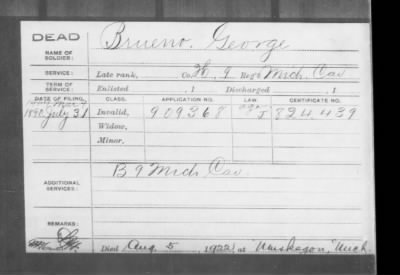 DEAD
NAME OF
SOLDIER:
Brueno, George
SERVICE:
Late rank, Co. H, 9 Reg't Mich. Cav
TERM OF
SERVICE:
Enlisted , 1 Discharged , 1
DATE OF FILING. CLASS. APPLICATION NO. LAW. CERTIFICATE NO.
1890 July 31 Invalid, 909368 J 824439
Widow,
Minor,
ADDITIONAL
SERVICES:
B 9 Mich Cav
REMARKS:
Died Aug. 5, 1922 at Muskegon, Mich